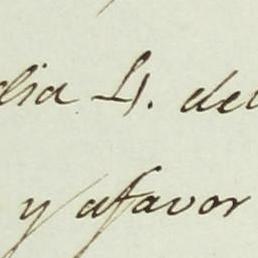 dia 21. del
y afavor